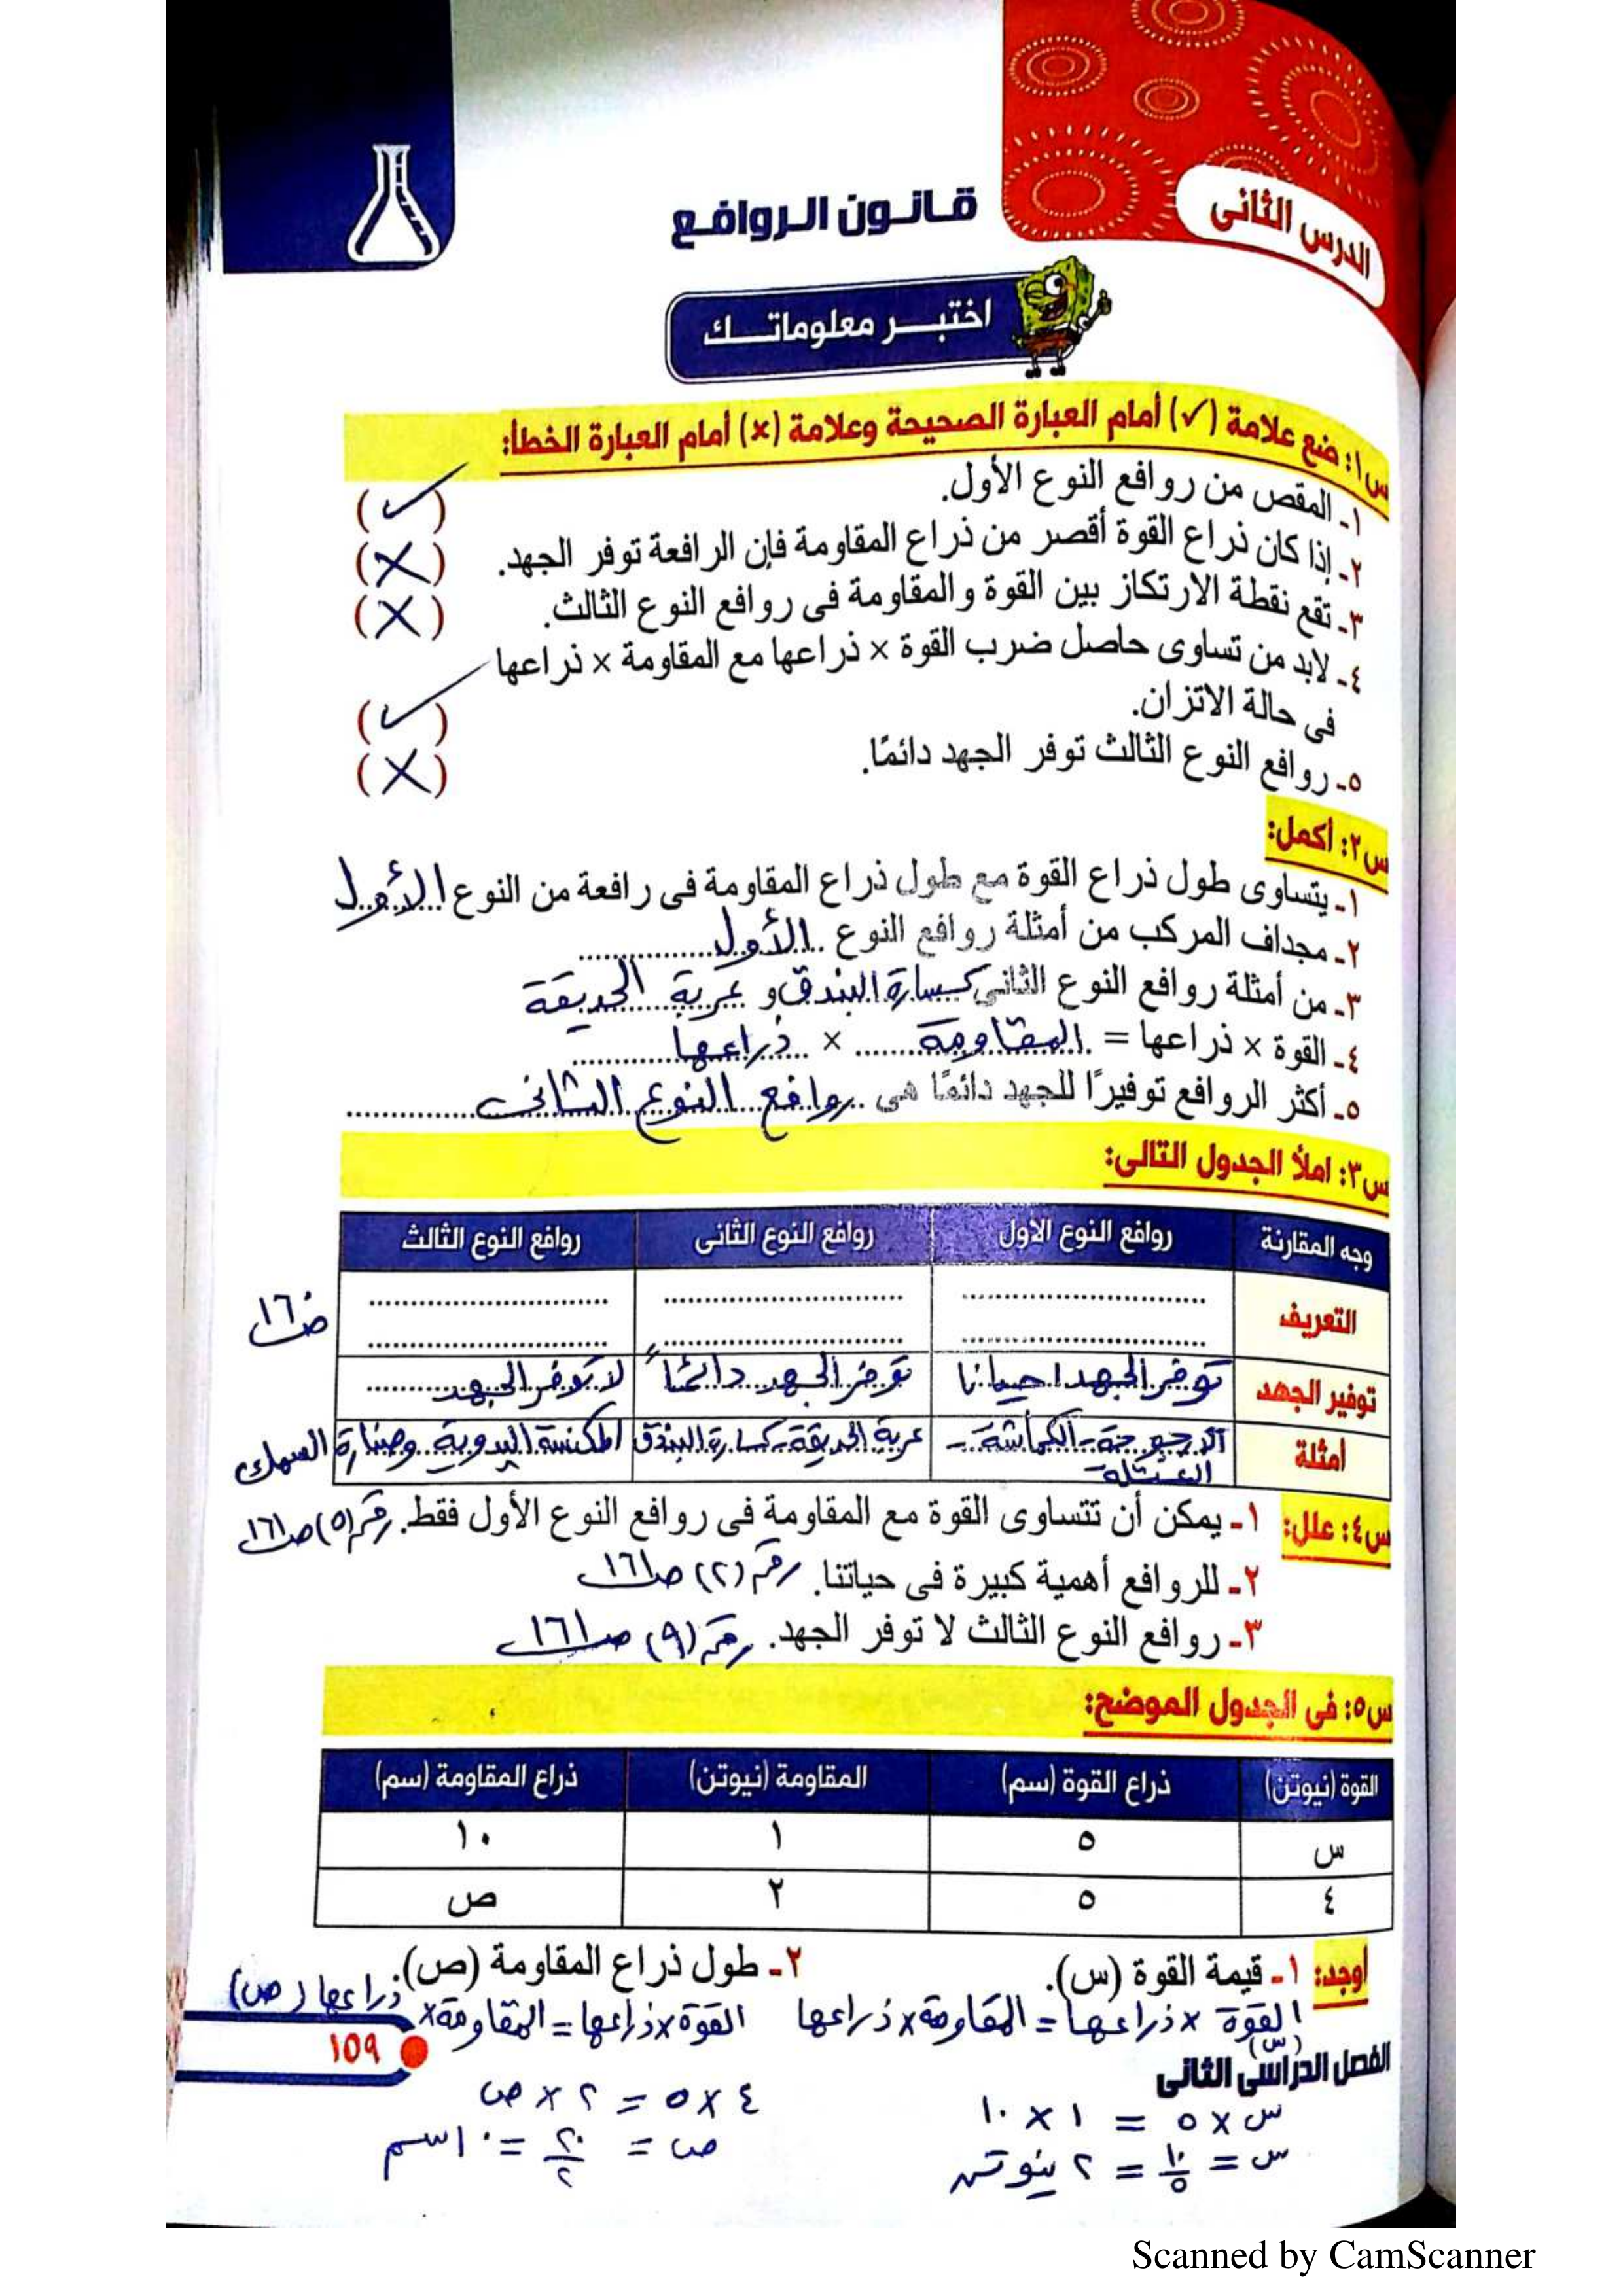 الدرس الثانى
قانون الروافع
اختبر معلوماتك
س١: ضع علامة (✓) أمام العبارة الصحيحة وعلامة (×) أمام العبارة الخطأ:
١ـ المقص من روافع النوع الأول. (✓)
٢ـ إذا كان ذراع القوة أقصر من ذراع المقاومة فإن الرافعة توفر الجهد. (×)
٣ـ تقع نقطة الارتكاز بين القوة والمقاومة فى روافع النوع الثالث. (×)
٤ـ لابد من تساوى حاصل ضرب القوة × ذراعها مع المقاومة × ذراعها
فى حالة الاتزان. (✓)
٥ـ روافع النوع الثالث توفر الجهد دائمًا. (×)
س٢: أكمل:
١ـ يتساوى طول ذراع القوة مع طول ذراع المقاومة فى رافعة من النوع الأول
٢ـ مجداف المركب من أمثلة روافع النوع الأول
٣ـ من أمثلة روافع النوع الثانى كسارة البندق و عربة الحديقة
٤ـ القوة × ذراعها = المقاومة × ذراعها
٥ـ أكثر الروافع توفيرًا للجهد دائمًا هى روافع النوع الثانى
س٣: املأ الجدول التالى:
وجه المقارنة روافع النوع الاول روافع النوع الثانى روافع النوع الثالث
التعريف
توفير الجهد توفر الجهد احيانا توفر الجهد دائمًا لا توفر الجهد
أمثلة الأرجوحة - الكماشة - العتلة عربة الحديقة - كسارة البندق المكنسة اليدوية وصنارة السمك
س٤: علل: ١ـ يمكن أن تتساوى القوة مع المقاومة فى روافع النوع الأول فقط. رقم (٥) صـ١٦١
٢ـ للروافع أهمية كبيرة فى حياتنا. رقم (٢) صـ١٦١
٣ـ روافع النوع الثالث لا توفر الجهد. رقم (٩) صـ١٦١
س٥: فى الجدول الموضح:
القوة (نيوتن) ذراع القوة (سم) المقاومة (نيوتن) ذراع المقاومة (سم)
س ٥ ١ ١٠
٤ ٥ ٢ ص
أوجد: ١ـ قيمة القوة (س). ٢ـ طول ذراع المقاومة (ص).
القوة × ذراعها = المقاومة × ذراعها القوة × ذراعها = المقاومة × ذراعها (ص)
(س)
الفصل الدراسى الثانى
١٥٩
س × ٥ = ١ × ١٠ ٤ × ٥ = ٢ × ص
س = ١٠/٥ = ٢ نيوتن ص = ٢٠/٢ = ١٠ سم
Scanned by CamScanner